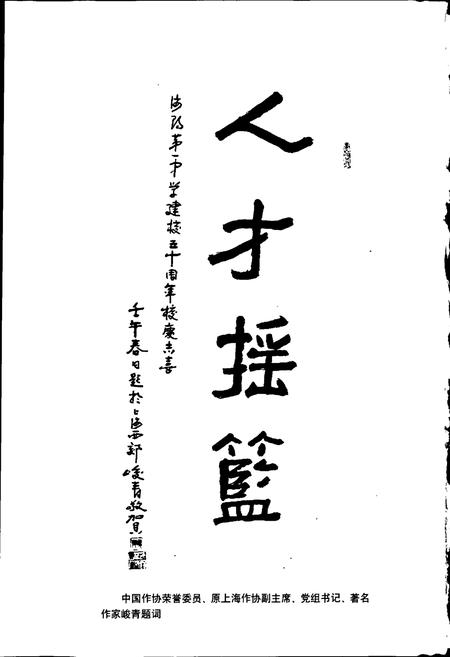 人才摇籃
海阳第一中学建校五十周年校庆志喜
壬午春日题於上海西郊峻青敬贺
中国作协荣誉委员、原上海作协副主席、党组书记、著名
作家峻青题词